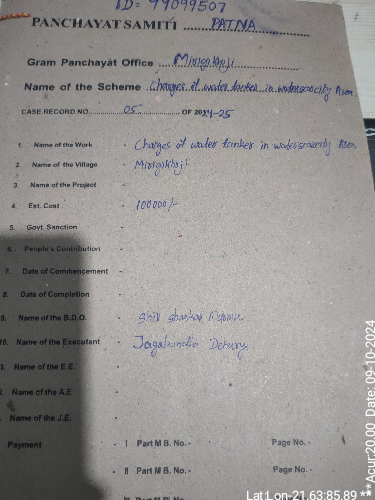 ID= 99099507
PANCHAYAT SAMITI PATNA
Gram Panchayat Office Mirigikhoji
Name of the Scheme Charges of water tanker in waterscarcity Area
CASE RECORD NO. 05 OF 2024-25
1. Name of the Work - Charges of water tanker in waterscarcity Area
2. Name of the Village - Mirigikhoji
3. Name of the Project -
4. Est. Cost - 100000/-
5. Govt. Sanction -
6. People's Contribution -
7. Date of Commencement -
8. Date of Completion -
9. Name of the B.D.O. - shankar
10. Name of the Executant - Jagabandhu Dehury
Name of the E.E. -
Name of the A.E -
Name of the J.E. -
Payment - I Part M B. No.- Page No. -
- II Part M B. No.- Page No. -
Lat Lon-21.63:85.89 ***Acur:20.00 Date: 09-10-2024